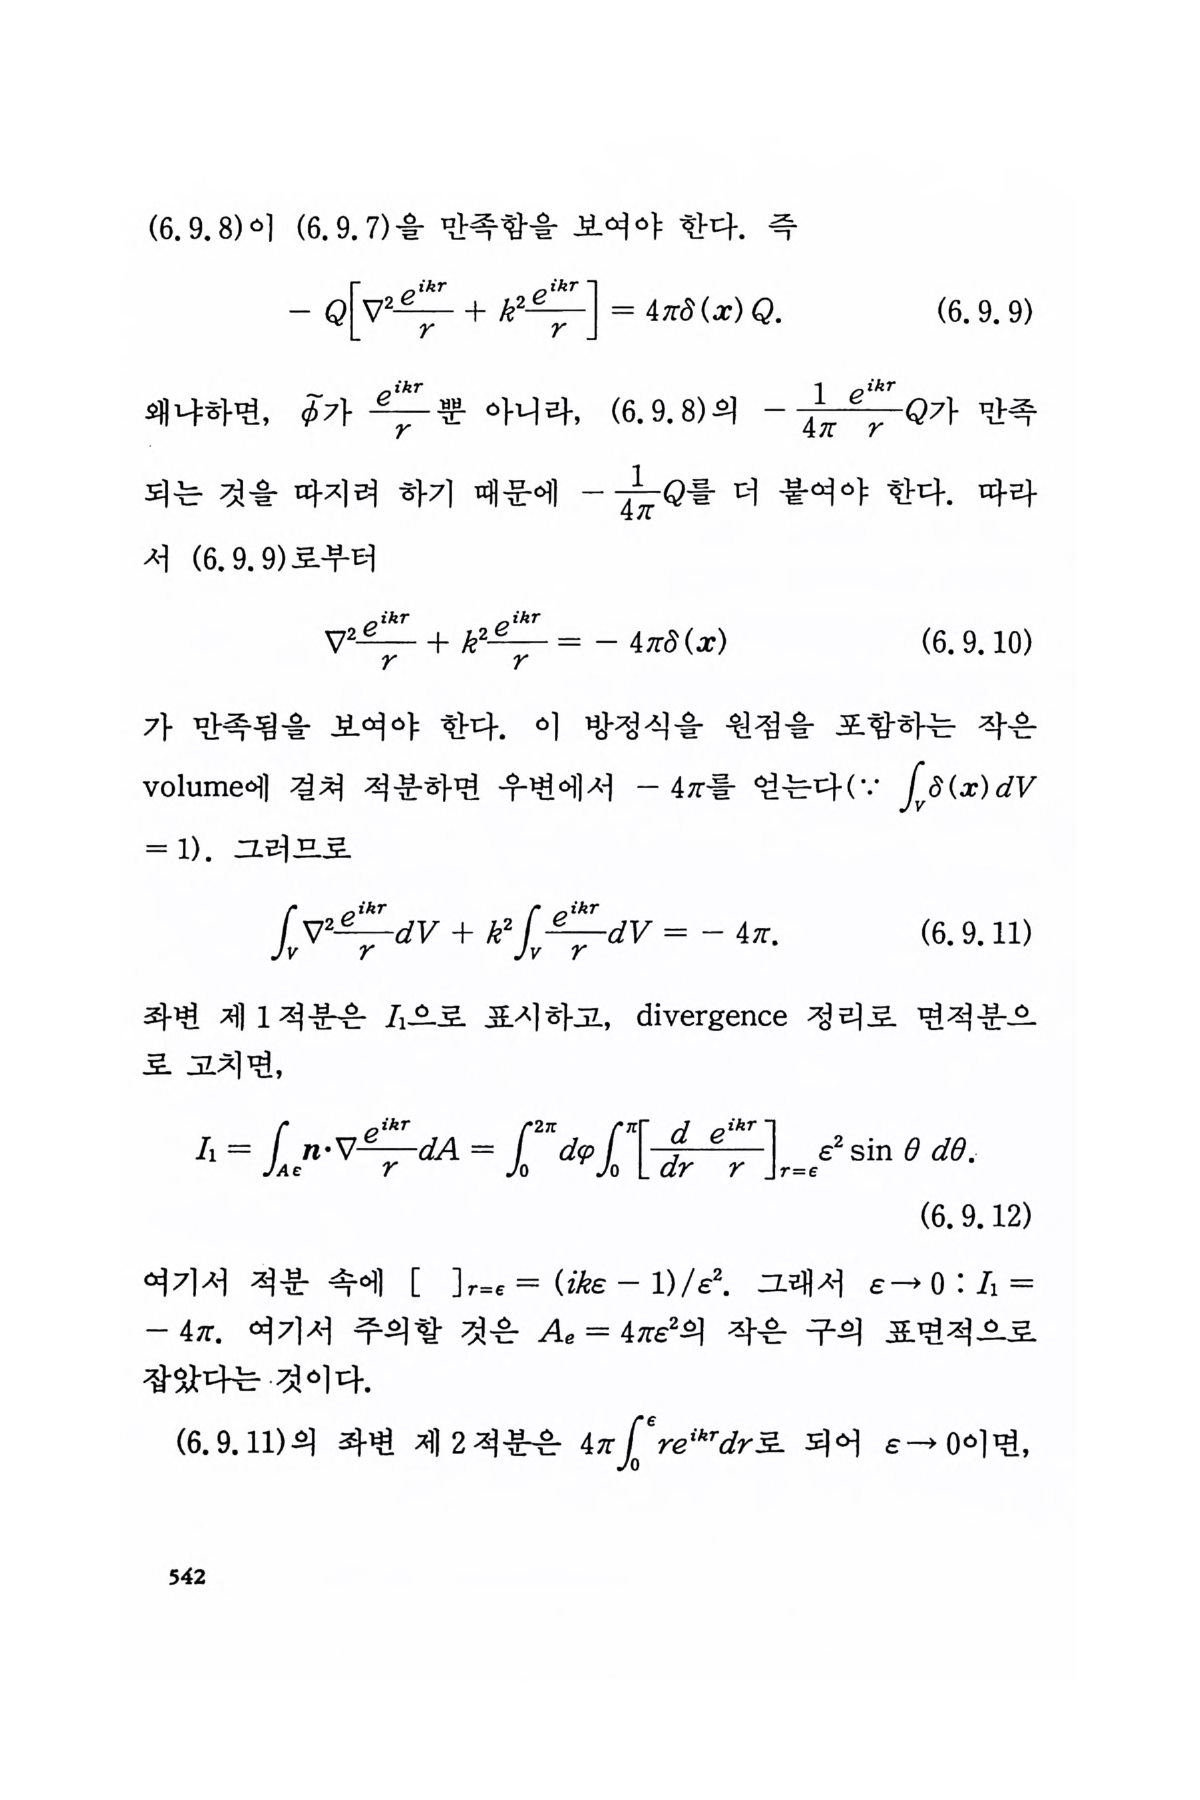 (6. 9. 8)이 (6. 9. 7)을 만족함을 보여야 한다. 즉
$- Q\left[\nabla^2 \frac{e^{ikr}}{r} + k^2 \frac{e^{ikr}}{r}\right] = 4\pi\delta(\boldsymbol{x})Q.$ (6. 9. 9)
왜냐하면, $\tilde{\phi}$가 $\frac{e^{ikr}}{r}$뿐 아니라, (6. 9. 8)의 $-\frac{1}{4\pi}\frac{e^{ikr}}{r}Q$가 만족
되는 것을 따지려 하기 때문에 $-\frac{1}{4\pi}Q$를 더 붙여야 한다. 따라
서 (6. 9. 9)로부터
$\nabla^2 \frac{e^{ikr}}{r} + k^2 \frac{e^{ikr}}{r} = - 4\pi\delta(\boldsymbol{x})$ (6. 9. 10)
가 만족됨을 보여야 한다. 이 방정식을 원점을 포함하는 작은
volume에 걸쳐 적분하면 우변에서 $- 4\pi$를 얻는다($\because \int_V \delta(\boldsymbol{x})dV$
$= 1$). 그러므로
$\int_V \nabla^2 \frac{e^{ikr}}{r}dV + k^2 \int_V \frac{e^{ikr}}{r}dV = - 4\pi.$ (6. 9. 11)
좌변 제 1 적분은 $I_1$으로 표시하고, divergence 정리로 면적분으
로 고치면,
$I_1 = \int_{A\epsilon} \boldsymbol{n}\cdot\nabla \frac{e^{ikr}}{r}dA = \int_0^{2\pi} d\varphi \int_0^{\pi} \left[\frac{d}{dr}\frac{e^{ikr}}{r}\right]_{r=\epsilon} \varepsilon^2 \sin\theta\, d\theta.$
(6. 9. 12)
여기서 적분 속에 $[\quad]_{r=\epsilon} = (ik\varepsilon - 1)/\varepsilon^2$. 그래서 $\varepsilon \to 0 : I_1 =$
$- 4\pi$. 여기서 주의할 것은 $A_e = 4\pi\varepsilon^2$의 작은 구의 표면적으로
잡았다는 것이다.
(6. 9. 11)의 좌변 제 2 적분은 $4\pi\int_0^{\epsilon} re^{ikr}dr$로 되어 $\varepsilon \to 0$이면,
542